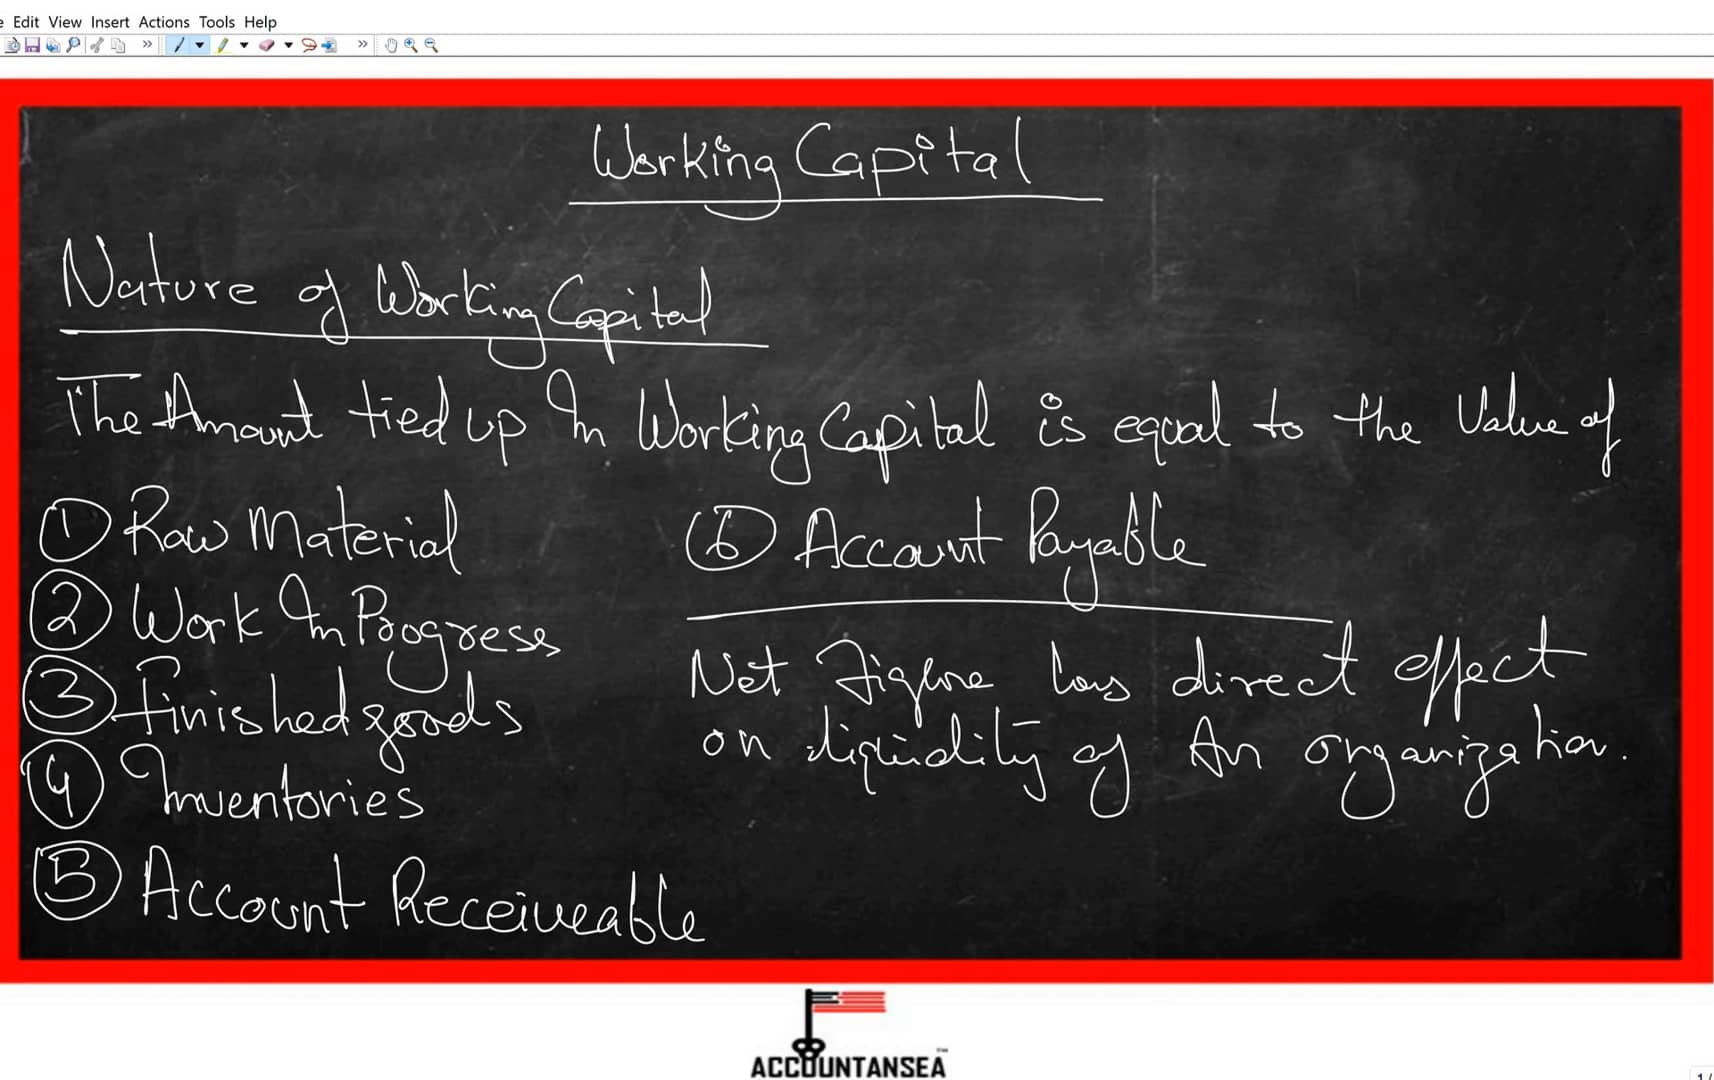 e Edit View Insert Actions Tools Help
Working Capital
Nature of Working Capital
The Amount tied up In Working Capital is equal to the Value of
① Raw Material
② Work In Progress
③ Finished goods
④ Inventories
⑤ Account Receiveable
⑥ Account Payable
Net Figure has direct effect
on liquidity of An organization.
ACCOUNTANSEA™